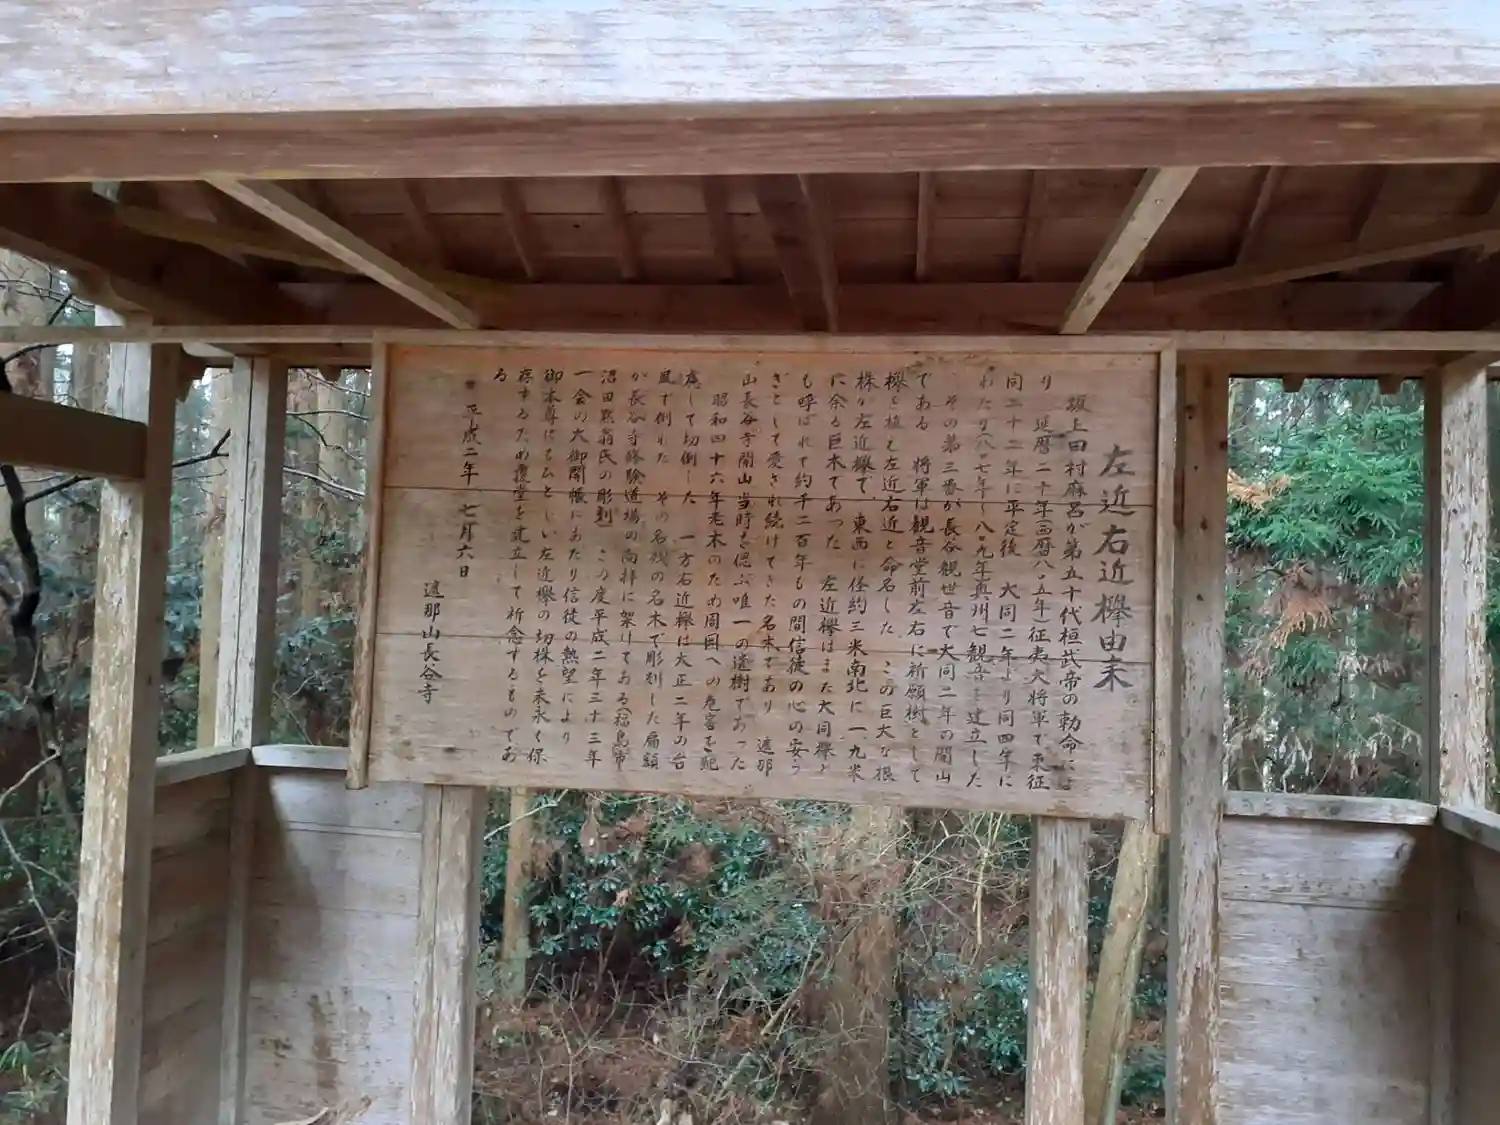 左近右近欅由来
坂上田村麻呂が第五十代桓武帝の勅命によ
り 延暦二十年(西暦八〇五年)征夷大将軍で東征
同二十二年に平定後 大同二年より同四年に
わたり(八〇七年〜八〇九年)奥州七観音を建立した
その第三番が長谷観世音で大同二年の開山
である 将軍は観音堂前左右に祈願樹として
欅を植え左近右近と命名した この巨大な根
株が左近欅で、東西に径約三米南北に一九米
に余る巨木であった 左近欅はまた大同欅と
も呼ばれて約千二百年もの間信徒の心の安ら
ぎとして愛され続けてきた名木であり 遮那
山長谷寺開山当時を偲ぶ唯一の遺樹であった
昭和四十六年老木のため周囲への危害を配
慮して切倒した 一方右近欅は大正二年の台
風で倒れた その名残の名木で彫刻した扁額
が長谷寺修験道場の向拝に架けてある(福島市
沼田黙翁氏の彫刻) この度平成二年三十三年
一会の大御開帳にあたり信徒の熱望により
御本尊にちなとしい左近欅の切株を末永く保
存するため覆堂を建立して祈念するものであ
る
平成二年 七月六日
遮那山長谷寺